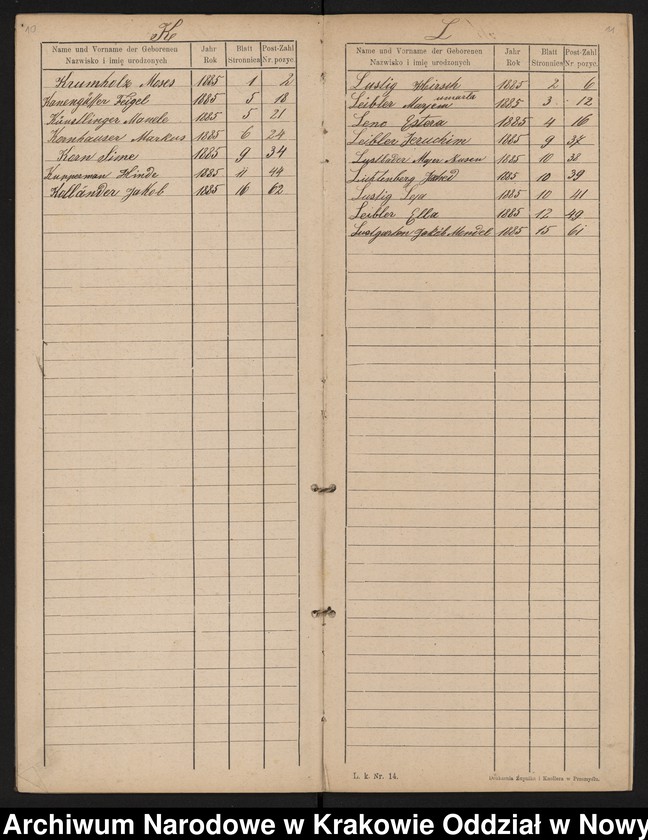 10
K
Name und Vorname der Geborenen Jahr Blatt Post-Zahl
Nazwisko i imię urodzonych Rok Stronnica Nr. pozyc.
Krumholz Moses 1885 1 2
Feigel 1885 5 18
Künstlinger Manele 1885 5 21
Kornhauser Markus 1885 6 24
Korn Sime 1885 9 34
Kupperman Hinde 1885 11 44
Holländer Jakob 1885 16 62
11
L
Name und Vorname der Geborenen Jahr Blatt Post-Zahl
Nazwisko i imię urodzonych Rok Stronnica Nr. pozyc.
Lustig Hirsch 1885 2 6
umarła
Leibler Maryem 1885 3 12
Leno Estera 1885 4 16
Leibler Jeruchim 1885 9 37
Majer Nusen 1885 10 38
Lichtenberg 1885 10 39
Lustig 1885 10 41
Leibler Ella 1885 12 49
Lustgarten Jakób Mendel 1885 15 61
L. k. Nr. 14.
Drukarnia Żupnika i Knollera w Przemyślu.
Archiwum Narodowe w Krakowie Oddział w Nowy